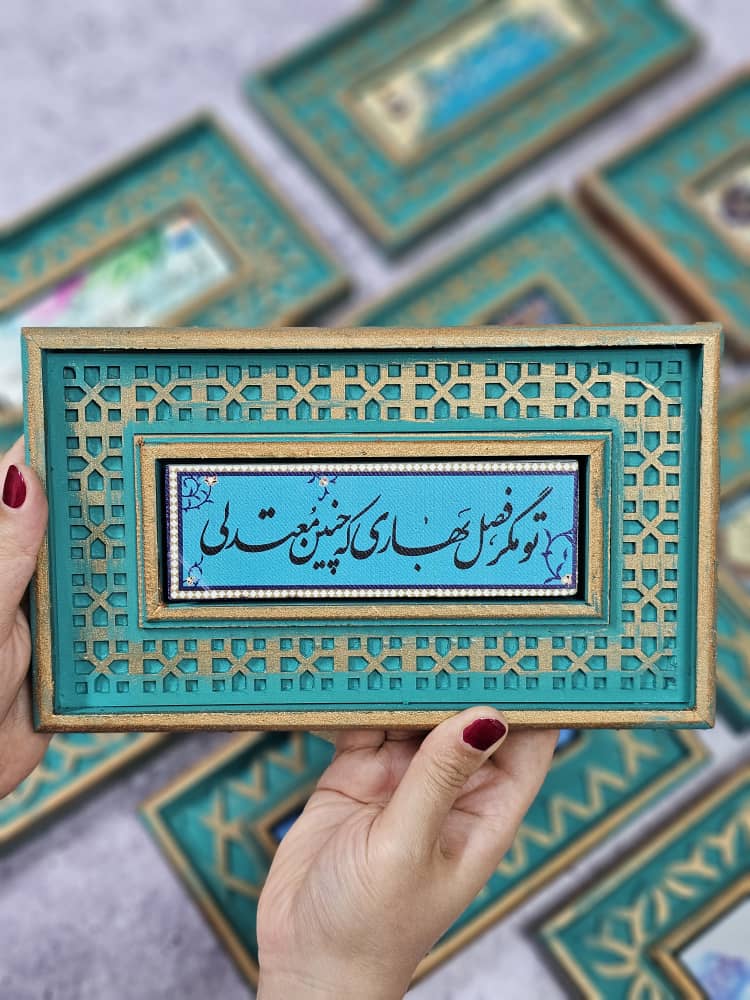 تو مگر فصل بَهاری که چنین مُعتدلی